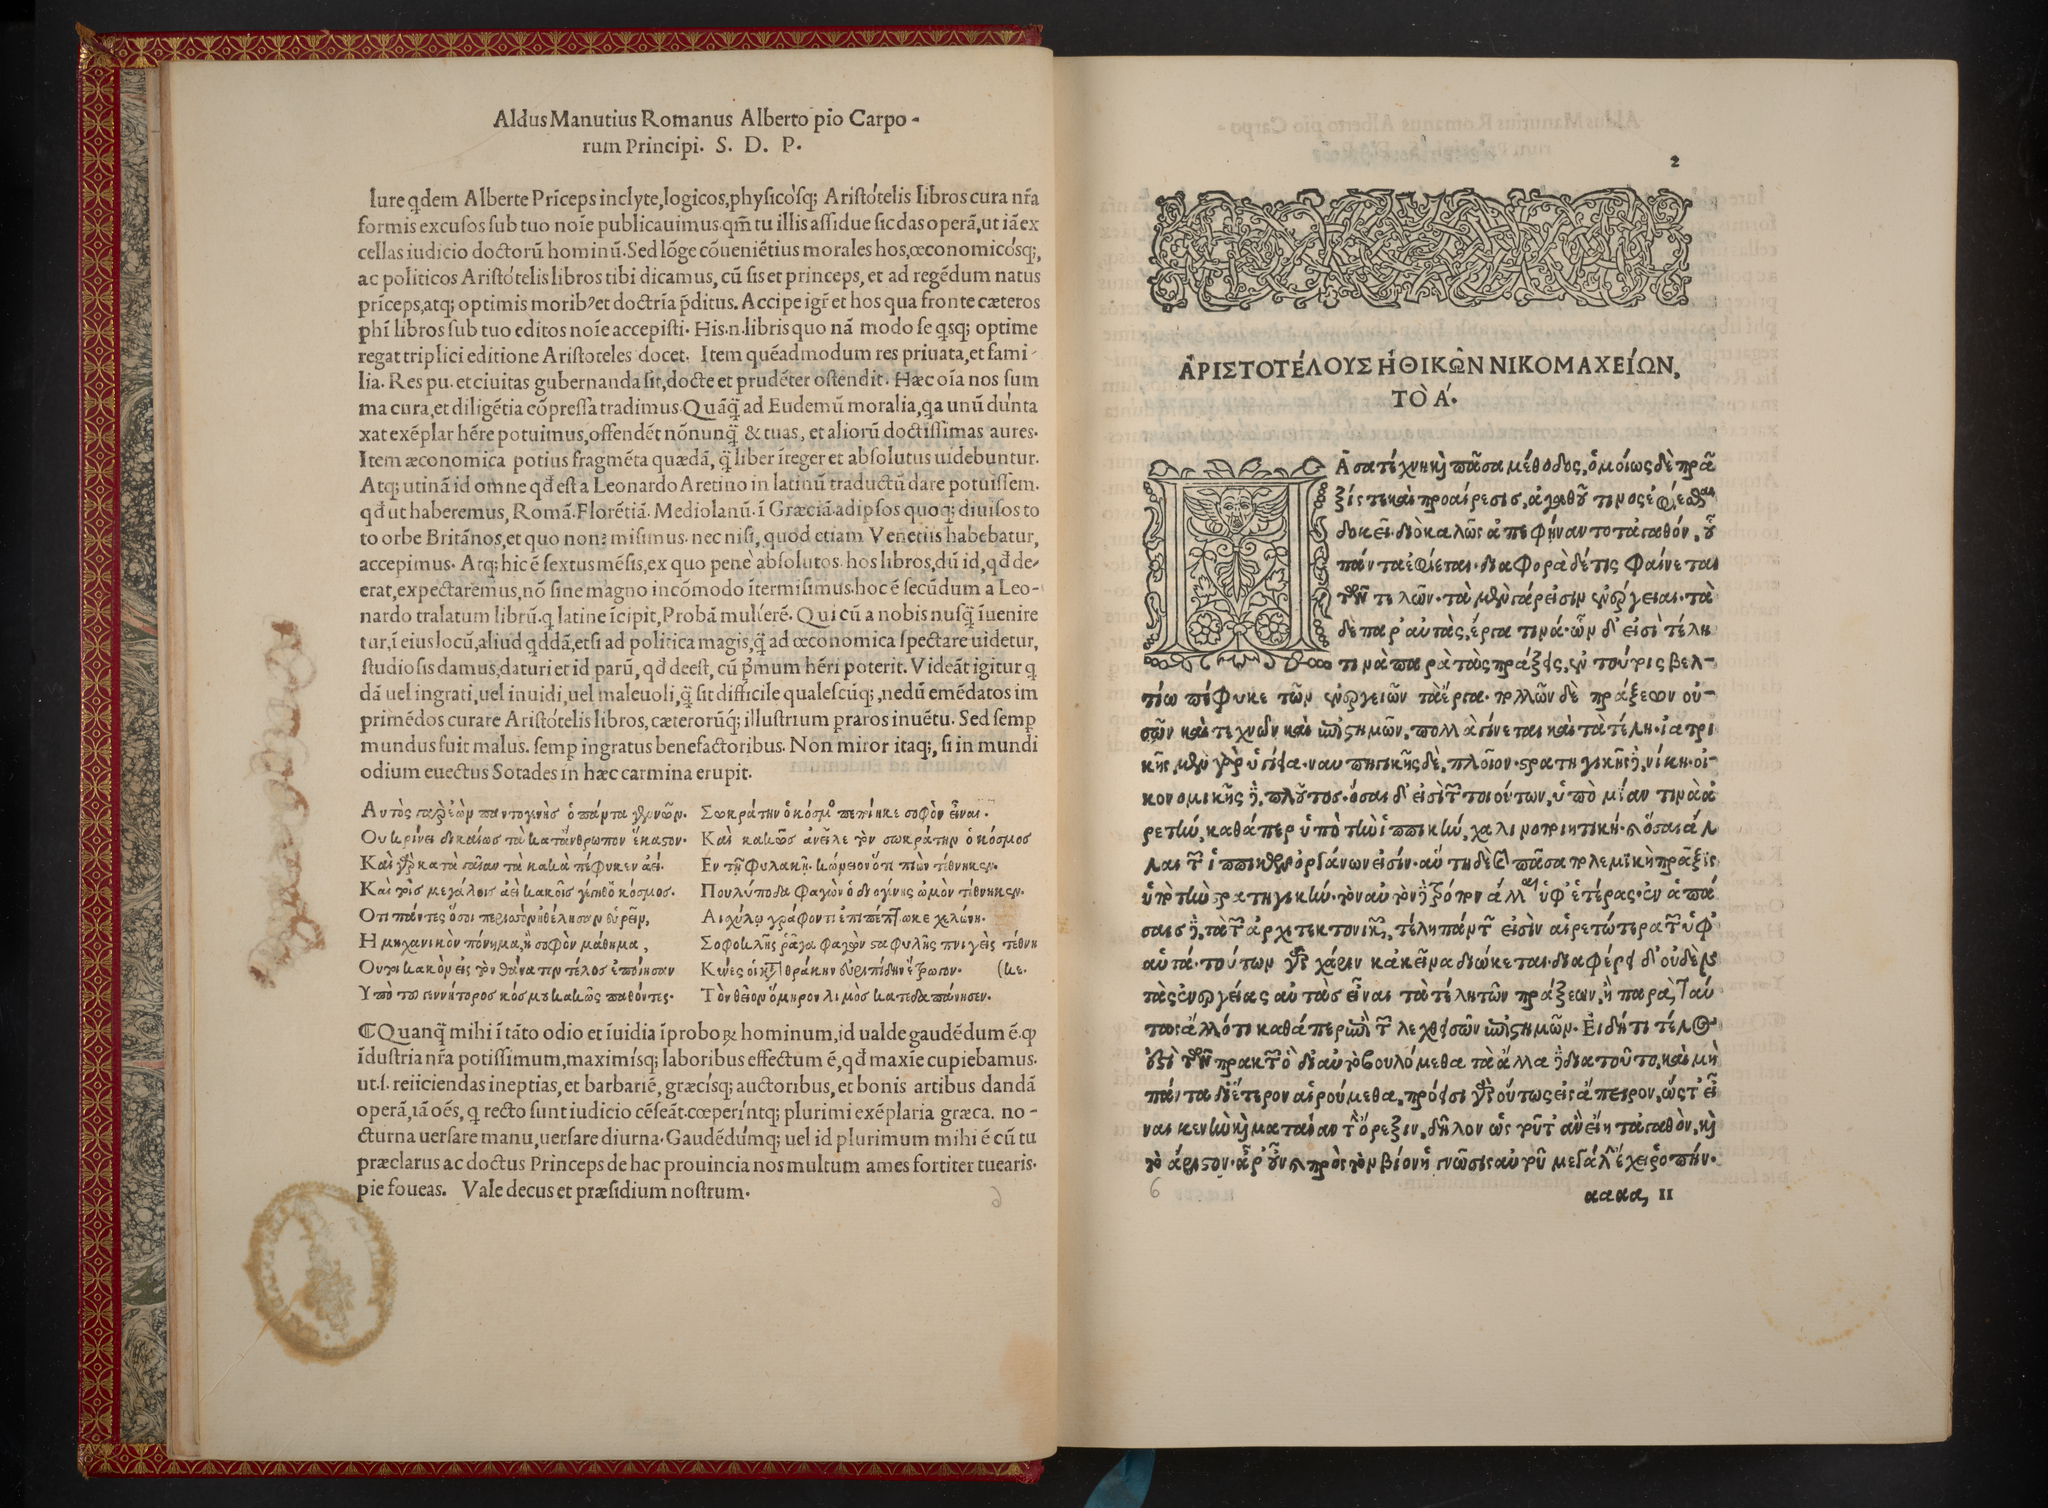 Aldus Manutius Romanus Alberto pio Carpo-
rum Principi. S. D. P.
Iure qdem Alberte Prīceps inclyte, logicos, physicósq; Aristótelis libros cura nr̃a
formis excusos sub tuo noīe publicauimus. qm̄ tu illis assidue sic das operā, ut iā ex
cellas iudicio doctorū hominū. Sed lōge cōueniētius morales hos, œconomicósq;,
ac politicos Aristótelis libros tibi dicamus, cū sis et princeps, et ad regēdum natus
prīceps, atq; optimis morib' et doctrīa p̄ditus. Accipe igr̃ et hos qua fronte cæteros
phī libros sub tuo editos noīe accepisti. His.n.libris quo nā modo se qsq; optime
regat triplici editione Aristoteles docet. Item quēadmodum res priuata, et fami-
lia. Res pu. et ciuitas gubernanda sit, docte et prudēter ostendit. Hæc oīa nos sum
ma cura, et diligētia cōpressa tradimus. Quāq̄ ad Eudemū moralia, qa unū dūnta
xat exēplar hēre potuimus, offendēt nōnunq̄ & tuas, et aliorū doctissimas aures.
Item œconomica potius fragmēta quædā, q̄ liber īteger et absolutus uidebuntur.
Atq; utinā id omne qđ est a Leonardo Aretino in latinū traductū dare potuissem.
qđ ut haberemus, Romā. Florētiā. Mediolanū. ī Græciā. ad ipsos quoq; diuisos to
to orbe Britānos, et quo non? misimus. nec nisi, quod etiam Venetiis habebatur,
accepimus. Atq; hic ē sextus mēsis, ex quo pene absolutos hos libros, dū id, qđ de-
erat, expectaremus, nō sine magno incōmodo ītermisimus. hoc ē secūdum a Leo-
nardo tralatum librū. q latine īcipit, Probā mulíerē. Qui cū a nobis nusq̄ īuenire
tur, ī eius locū, aliud qddā, etsi ad politica magis, q̄ ad œconomica spectare uidetur,
studiosis damus, daturi et id parū, qđ deest, cū p̄mum hēri poterit. Videāt igitur q
dā uel ingrati, uel inuidi, uel maleuoli, q̄ sit difficile qualescūq;, nedū emēdatos im
primēdos curare Aristótelis libros, cæterorūq́; illustrium p raros inuētu. Sed semp
mundus fuit malus. semp ingratus benefactoribus. Non miror itaq;, si in mundi
odium euectus Sotades in hæc carmina erupit.
Αυτὸς γὰρ ἐὼν παντογενὴς ὁ πάντα γεννῶν.
Ου κρίνει δικαίως τὰ κατ' ἄνθρωπον ἕκαστον.
Καὶ γὰρ κατὰ γαῖαν τὰ κακὰ πέφυκεν ἀεί.
Καὶ τοῖς μεγάλοις ἀεὶ κακοῖς γέγηθ' ὁ κόσμος.
Οτι πάντες ὅσοι περισσὸν ἠθέλησαν εὑρεῖν,
Η μηχανικὸν πόνημα, ἢ σοφὸν μάθημα,
Ουτοι κακὸν εἰς τὸν θάνατον τέλος ἐποίησαν
Υπὸ τοῦ γεννήτορος κόσμου κακῶς παθόντες.
Σωκράτην ὁ κόσμος πεποίηκε σοφὸν εἶναι.
Καὶ κακῶς ἀνεῖλε τὸν σωκράτην ὁ κόσμος
Εν τῇ φυλακῇ. κώνειον ὅτι πιὼν τέθνηκεν.
Πουλύποδα φαγὼν ὁ διογένης ὠμὸν τέθνηκεν.
Αισχύλῳ γράφοντι ἐπιπέπτωκε χελώνη.
Σοφοκλῆς ῥᾶγα φαγὼν σταφυλῆς πνιγεὶς τέθνη
Κύνες οἱ κατὰ θράκην εὐριπίδην ἔτρωγον. (κε.
Τὸν θεῖον ὅμηρον λιμὸς κατεδαπάνησεν.
⁋Quanq̄ mihi ī tāto odio et īuidia īproboꝝ hominum, id ualde gaudēdum ē. ꝙ
īdustria nr̃a potissimum, maximísq; laboribus effectum ē, qđ maxīe cupiebamus.
ut.s. reiiciendas ineptias, et barbariē, græcísq; auctoribus, et bonis artibus dandā
operā, iā oēs, q recto sunt iudicio cēseāt. cœperíntq; plurimi exēplaria græca. no-
cturna uersare manu, uersare diurna. Gaudēdúmq; uel id plurimum mihi ē cū tu
præclarus ac doctus Princeps de hac prouincia nos multum ames fortiter tuearis.
pie foueas. Vale decus et præsidium nostrum.
2
ἈΡΙΣΤΟΤΈΛΟΥΣ ἨΘΙΚΩ͂Ν ΝΙΚΟΜΑΧΕΊΩΝ,
ΤῸ Α΄.
Πᾶσα τέχνη καὶ πᾶσα μέθοδος, ὁμοίως δὲ πρᾶ
ξίς τε καὶ προαίρεσις, ἀγαθοῦ τινος ἐφίεσθαι
δοκεῖ. διὸ καλῶς ἀπεφήναντο τἀγαθόν, οὗ
πάντα ἐφίεται. διαφορὰ δέ τις φαίνεται
τῶν τελῶν. τὰ μὲν γάρ εἰσιν ἐνέργειαι. τὰ
δὲ παρ' αὐτὰς, ἔργα τινά. ὧν δ' εἰσὶ τέλη
τινὰ παρὰ τὰς πράξεις, ἐν τούτοις βελ-
τίω πέφυκε τῶν ἐνεργειῶν τὰ ἔργα. πολλῶν δὲ πράξεων οὐ-
σῶν καὶ τεχνῶν καὶ ἐπιστημῶν, πολλὰ γίνεται καὶ τὰ τέλη. ἰατρι
κῆς μὲν γὰρ ὑγίεια. ναυπηγικῆς δὲ, πλοῖον. στρατηγικῆς δὲ, νίκη. οἰ-
κονομικῆς δὲ, πλοῦτος. ὅσαι δ' εἰσὶ τῶν τοιούτων, ὑπὸ μίαν τινὰ ἀ
ρετὴν, καθάπερ ὑπὸ τὴν ἱππικὴν, χαλινοποιητικὴ. καὶ ὅσαι ἄλ
λαι τῶν ἱππικῶν ὀργάνων εἰσίν. αὕτη δὲ καὶ πᾶσα πολεμικὴ πρᾶξις
ὑπὸ τὴν στρατηγικήν. τὸν αὐτὸν δὲ τρόπον ἄλλαι ὑφ' ἑτέρας. ἐν ἁπά
σαις δὲ, τὰ τῶν ἀρχιτεκτονικῶν, τέλη πάντων εἰσὶν αἱρετώτερα τῶν ὑφ'
αὑτά. τούτων γὰρ χάριν κἀκεῖνα διώκεται. διαφέρει δ' οὐδὲν
τὰς ἐνεργείας αὐτὰς εἶναι τὰ τέλη τῶν πράξεων, ἢ παρὰ ταύ
τας ἄλλό τι καθάπερ ἐπὶ τῶν λεχθεισῶν ἐπιστημῶν. Εἰ δή τι τέλος
ἐστὶ τῶν πρακτῶν ὃ δι' αὑτὸ βουλόμεθα τὰ ἄλλα δὲ διὰ τοῦτο, καὶ μὴ
πάντα δι' ἕτερον αἱρούμεθα, πρόεισι γὰρ οὕτως εἰς ἄπειρον, ὥστ' εἶ
ναι κενὴν καὶ ματαίαν τὴν ὄρεξιν, δῆλον ὡς τοῦτ' ἂν εἴη τἀγαθὸν, καὶ
τὸ ἄριστον. ἆρ' οὖν καὶ πρὸς τὸν βίον ἡ γνῶσις αὐτοῦ μεγάλην ἔχει ῥοπήν.
6
αααα, II